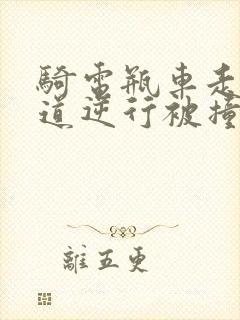 騎電瓶車走
道逆行被撞
離五更